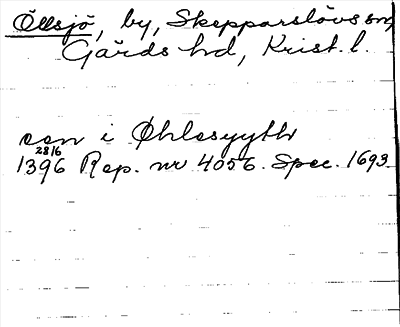 Öllsjö, by, Skepparslövs sn,
Gärds hd, Krist. l.
son i Øhlesyyth
28/6
1396 Rep. nr 4056. Spec. 1693